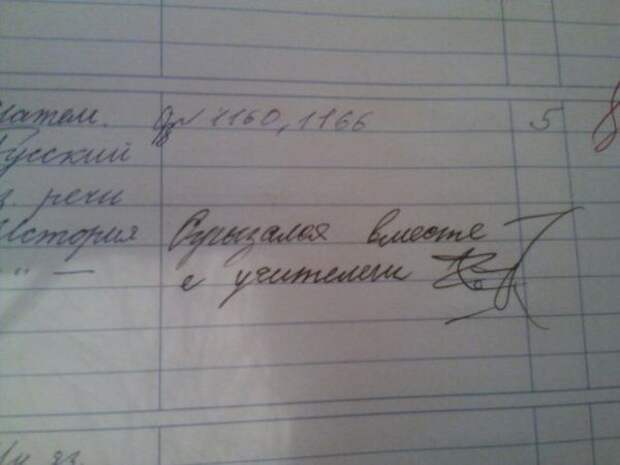 Матем. № 1160, 1166 5
Русский
р. речи
История Огрызался вместе
" — с учителем